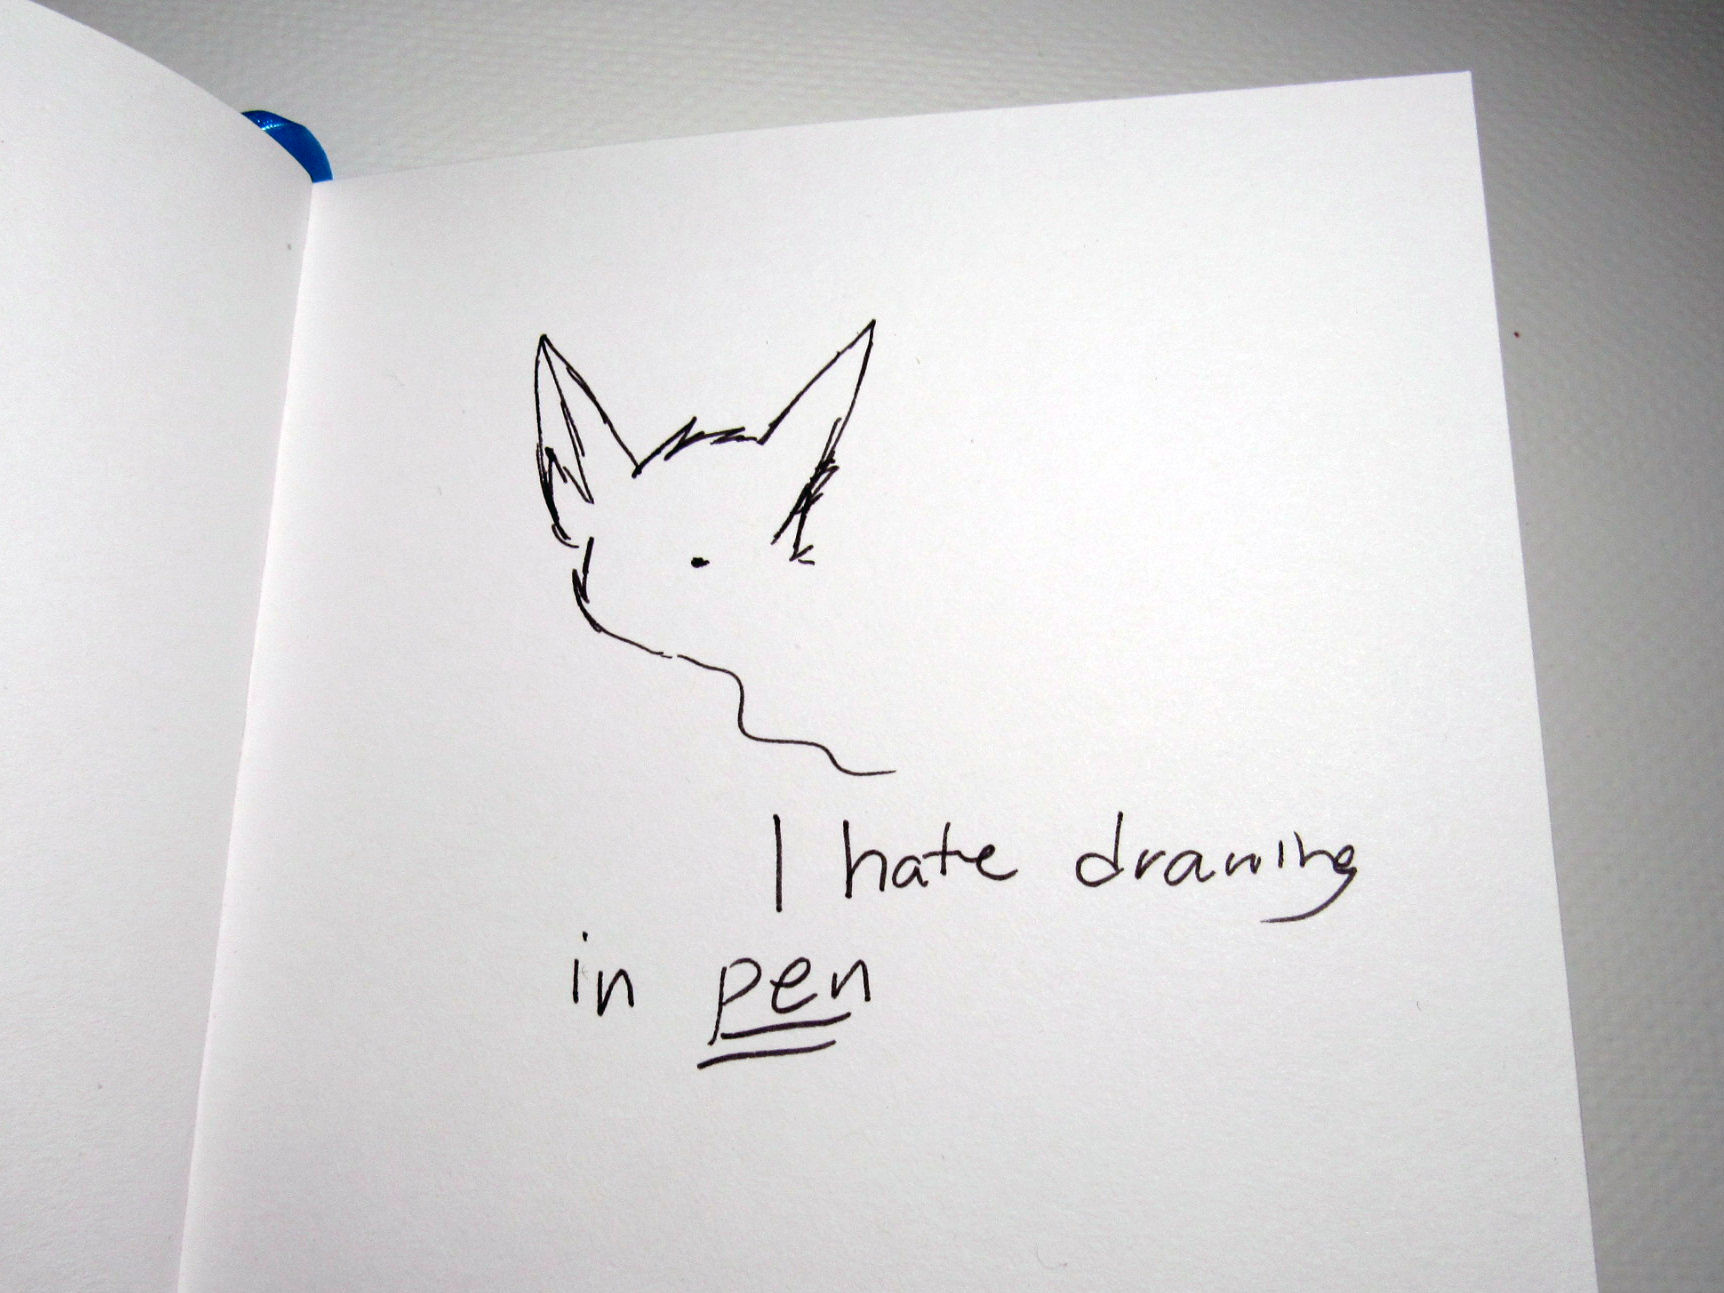 I hate drawing
in pen